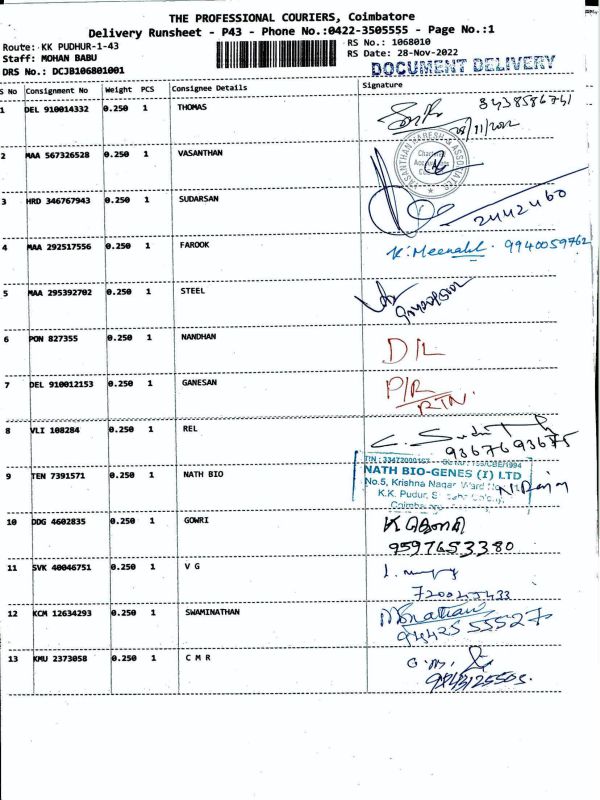 THE PROFESSIONAL COURIERS, Coimbatore
Delivery Runsheet - P43 - Phone No.:0422-3505555 - Page No.:1
Route: KK PUDHUR-1-43
RS No.: 1068010
Staff: MOHAN BABU
RS Date: 28-Nov-2022
DRS No.: DCJB106801001
DOCUMENT DELIVERY
S No Consignment No Weight PCS Consignee Details Signature
1 DEL 910014332 0.250 1 THOMAS 8438586741
28/11/2022
2 MAA 567326528 0.250 1 VASANTHAN
3 HRD 346767943 0.250 1 SUDARSAN 2442460
4 MAA 292517556 0.250 1 FAROOK K. Meenakl. 9940059762
5 MAA 295392702 0.250 1 STEEL
6 PON 827355 0.250 1 NANDHAN D/L
7 DEL 910012153 0.250 1 GANESAN P/R
RTN.
8 VLI 108284 0.250 1 REL
9367693675
9 TEN 7391571 0.250 1 NATH BIO NATH BIO-GENES (I) LTD
No.5, Krishna Nagar Ward No.
K.K. Pudur,
Coimbatore
10 DDG 4602835 0.250 1 GOWRI
9597653380
11 SVK 40046751 0.250 1 V G
12 KCM 12634293 0.250 1 SWAMINATHAN
9442555527
13 KMU 2373058 0.250 1 C M R